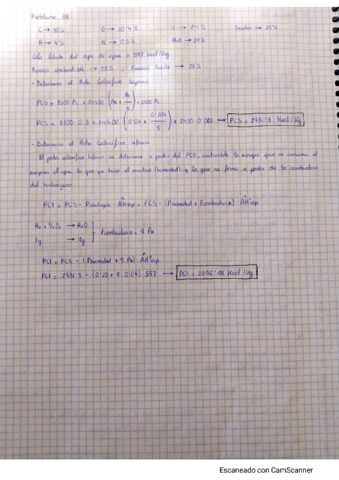 Problema 11
C → 30% O → 20'4% S → 0'1% Inertes → 25%
H → 4% N → 0'5% H₂O → 20%
Calor latente del agua = 597 Kcal/Kg
Fracción combustible → 55% Fracción → 25%
- Determinar el Poder Calorífico Superior
PCS = 8100 Pc + 34400 (PH - Po/8) + 2500 Ps
PCS = 8100 · 0'3 + 34400 (0'04 - 0'204/8) + 2500 · 0'001 → PCS = Kcal/Kg
- Determinar el Poder Calorífico Inferior
El poder calorífico inferior se determina a partir del PCS, restándole la energía que se consume al
evaporar el agua, la que ya tiene el residuo (humedad) y la que se forma a partir de la combustión
del hidrógeno
PCI = PCS - Pagua ΔHvap = PCS - (Phumedad + Pcombustion) ΔHvap
H₂ + ½O₂ → H₂O
1g → 9g
Pcombustion = 9 PH
PCI = PCS - (Phumedad + 9 PH) ΔHvap
PCI = - (0'20 + 9 · 0'04) 597 → PCI = Kcal/Kg
Escaneado con CamScanner